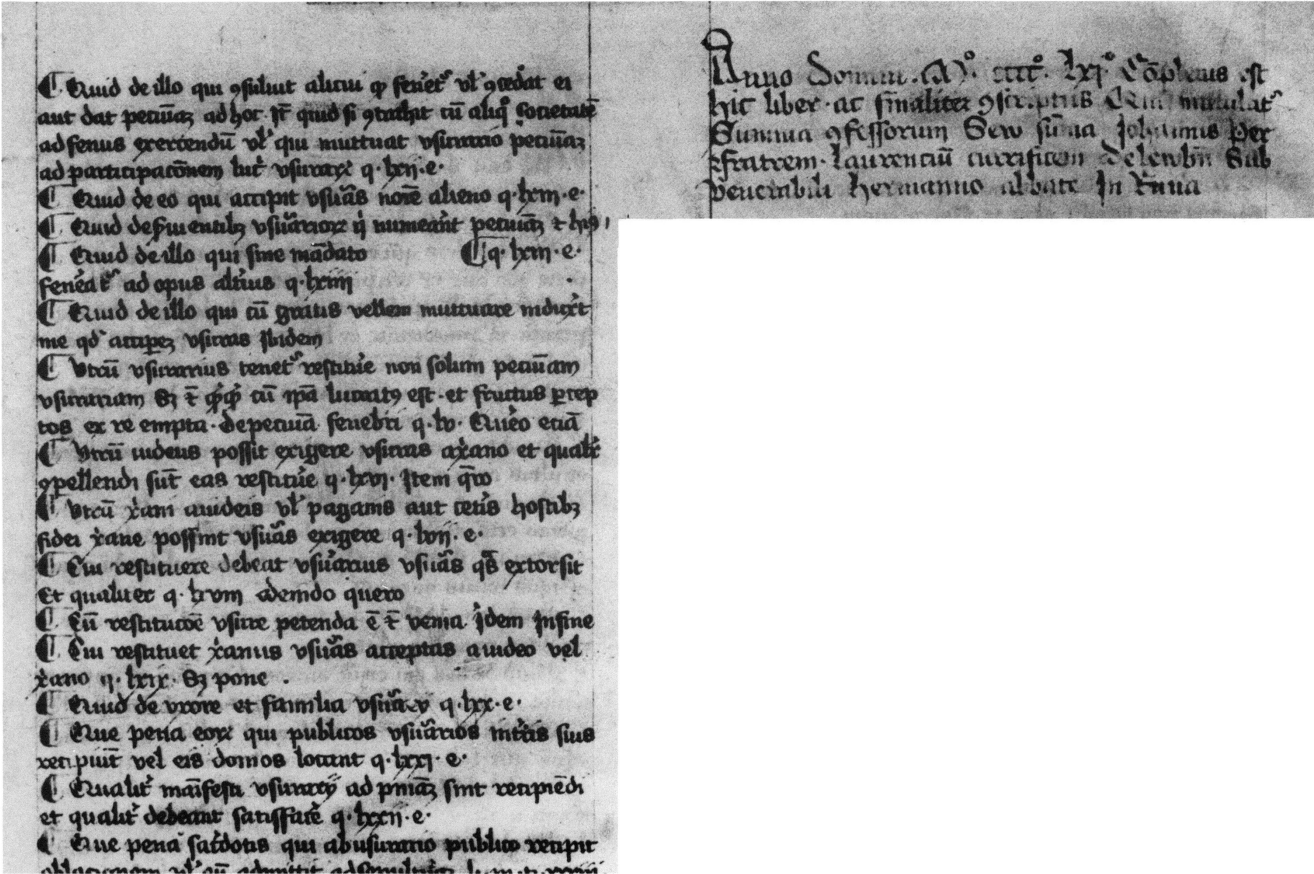 ¶ Quid de illo qui ꝯsuluit alicui ꝙ fener̄et᷑ vl̓ ꝯcedat ei
aut dat pecun̄iaꝫ ad hoc. It̄ quid si ꝯtrahit cū aliq̊ societatē
ad fenus exercendū vl̓ qui muttuat vsurario pecun̄iaꝫ
ad participac̄onem lucr̄ vsurarꝝ q. lxij. e.
¶ Quid de eo qui accipit vsur̄as noīe alieno q. lxiij. e.
¶ Quid de s̄uientibꝫ vsur̄arioꝝ q̇ numerān̄t pecun̄iaꝫ ⁊ hiꝰ
¶ Quid de illo qui sine mādato ¶ q. lxiij. e.
fener̄at᷑ ad opus alt̓ius q. lxiiij
¶ Quid de illo qui cū gratis vellem muttuare induxīt
me qd̓ acciꝑeꝫ vsuras Ibidem
¶ Vtrū vsurarius tenet᷑ restitu̓e non solum pecun̄iam
vsurariam sꝫ ⁊ cū ip̄a lucratꝰ est. et fructus ꝑcep
tos ex re empta. de pecun̄ia fenebri q. lv. Quēro eciā
¶ Vtrū iudeus possit exigere vsuras a xāno et qualit̓
ꝯpellendi sūt eas restitu̓e q. lxvi. Item q̄ro
¶ Vtrū xāni a iudeis vl̓ paganis aut cet̓is hostibꝫ
fidei xāne possint vsur̄as exigere q. lvij. e.
¶ Cui restituere debeat vsur̄arius vsur̄as q̄s extorsit
Et qualiter q. lxviij adeundo quero
¶ Cū restituc̄oē vsure petenda ē ⁊ venia Ibdem In fine
¶ Cui restituet xānus vsur̄as acceptas a iudeo vel
xāno q. lxix. sꝫ pone .
¶ Quid de vxore et familia vsur̄arij q. lxx. e.
¶ Que pena eoꝝ qui publicos vsur̄arios in tr̄is suis
recipiūt vel eis domos locant q. lxxi. e.
¶ Qualit̓ māifesti vsurarij ad pn̄iaꝫ sint recipiēdi
et qualit̓ debeant satisfacē q. lxxij. e.
¶ Que pena sac̄dotis qui ab usurario publico recipit
oblacionem vl̓ eū admittit ad sepultur̄am
Anno Domini .Mº. ccccº. lxjº Cōpletus est
hic liber. ac finaliter ꝯscriptus Qui intitulat᷑
Summa ꝯfessorum Sew sum̄a Iohannis Per
fratrem. laurencium currificem de lewbn̄ Sub
venerabili hermanno abbate In Runa